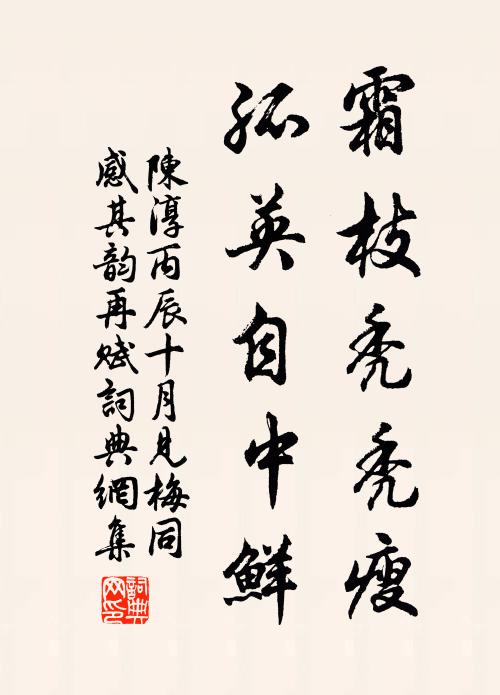 霜枝禿禿瘦
孤英自中鮮
陳淳丙辰十月見梅同
感其韵再賦詞典網集
詞典網印